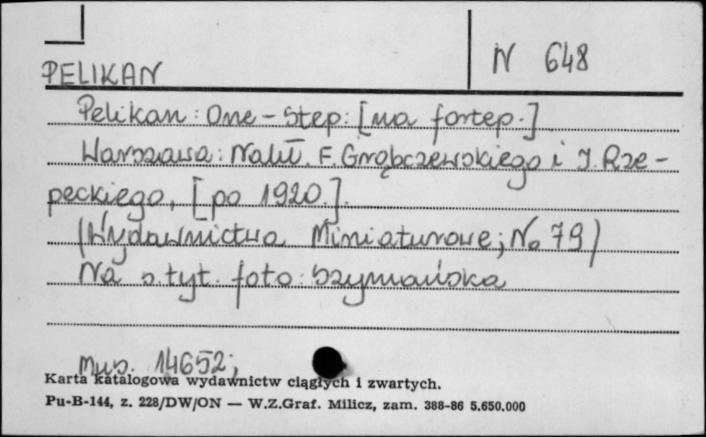 PELIKAN
N 648
Pelikan : One-Step : [na fortep.]
Warszawa : Nakł. F. Grąbczewskiego i J. Rze-
peckiego, [po 1920.].
(Wydawnictwo Miniaturowe; No 79)
Na s. tyt. foto : Szymańska
Mus. 14652;
Karta katalogowa wydawnictw ciągłych i zwartych.
Pu-B-144, z. 228/DW/ON — W.Z.Graf. Milicz, zam. 388-86 5.650.000